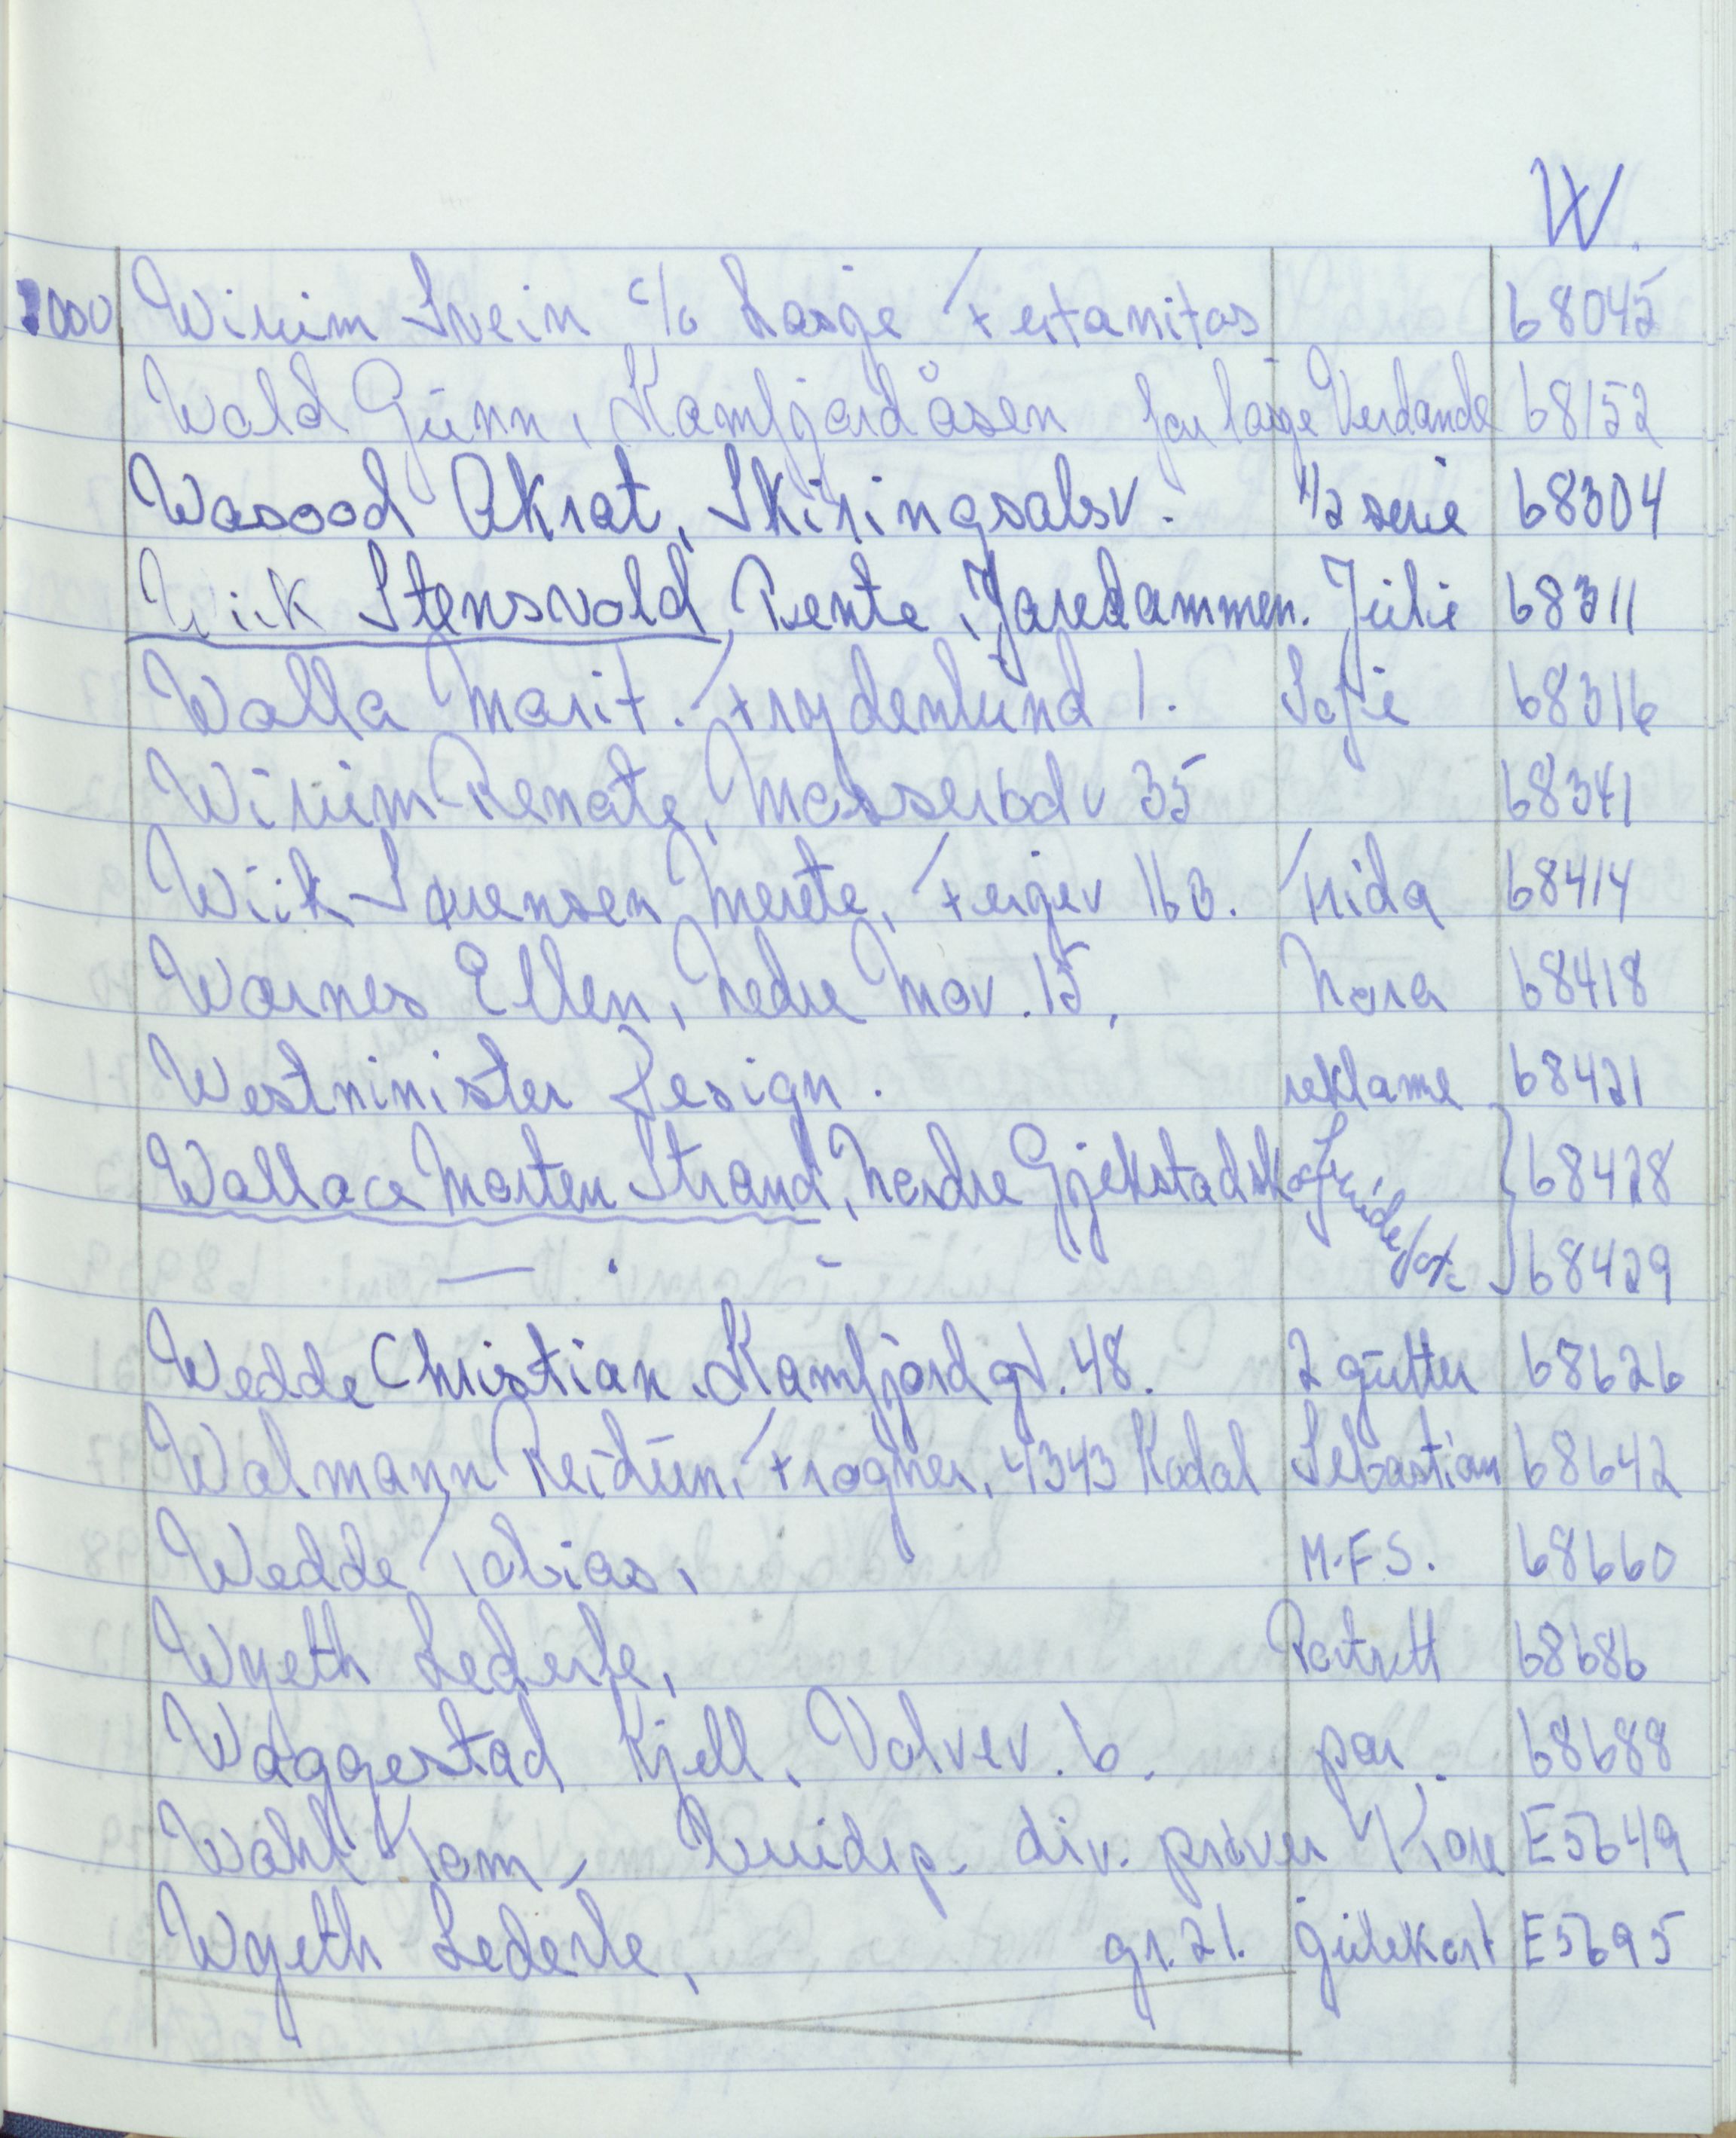 W.
2000 Wirum Svein c/o Lasge Festanitas 68045
Wold Gunn, Kamfjordåsen farlagge Verdande 68152
Wasood Akrat, Skiringsalsv. 1/2 serie 68304
Wiik Stensvold, Bente, Jaredammen. Julie 68311
Walla Marit. Frydenlund 1. Sofie 68316
Wirum Renate, Mosserødv 35 68341
Wiik-Sørensen Merete, Fergev 16 B. Frida 68414
Warnes Ellen, Nedre Mov. 15, Nora 68418
Westminister Design. reklame 68421
Wallace Morten Strand, Nordre Gjekstadsk 68428
— . - 68429
Wedde Christian. Kamfjordgt. 48. 2 gutter 68626
Walmann Reidun, Frogner, 4343 Kodal Sebastian 68642
Wedde Tobias, M.F.S. 68660
Wyeth Lederle, Portrett 68686
Waggestad Kjell, Volvev. 6. par. 68688
Wahl Tom, div. prøver Kar E5649
Wyeth Lederle, gr. 21. julekort E5695